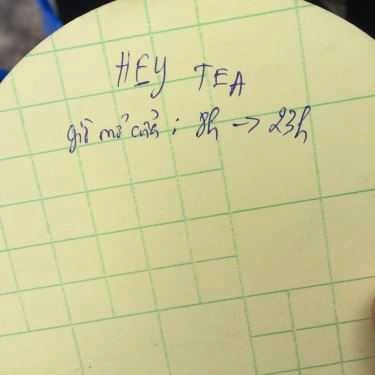 HEY TEA
giờ mở cửa : 8h → 23h